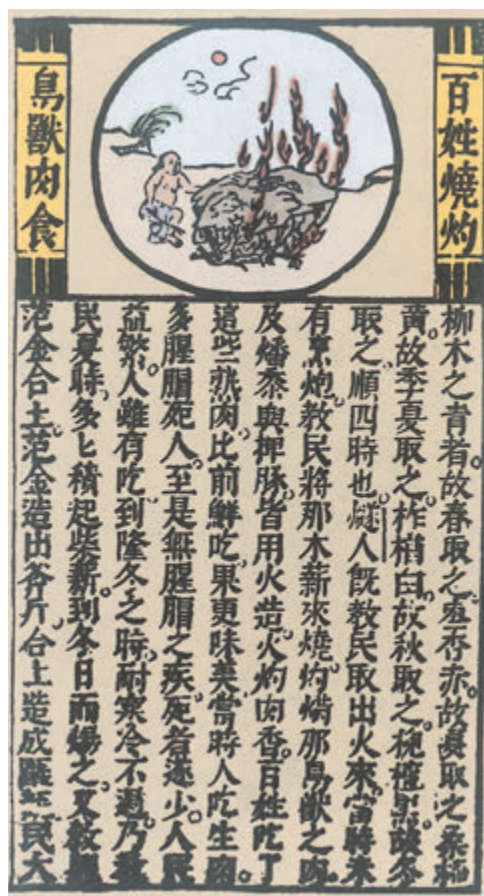 百姓燒灼
鳥獸肉食
柳木之青者。故春取之。棗杏赤。故夏取之。桑柘
黃。故季夏取之。柞楢白。故秋取之。槐檀黑。故冬
取之。順四時也。燧人既教民取出火來。當時未
有烹炮。教民將那木薪來燒灼燔那鳥獸之肉。
及燔黍與捭豚。皆用火造。火灼肉香。百姓吃了
這些熟肉。比前鮮吃。果更味美。當時人吃生肉。
多腥臊死人。至是無腥臊之疾。死者遂少。人民
益繁。人雖有吃。到隆冬之時。耐寒冷不過。乃教
民夏時多匕積起柴薪。到冬日而煬之。又教
范金合土。范金造出斧斤。合土造成 民大